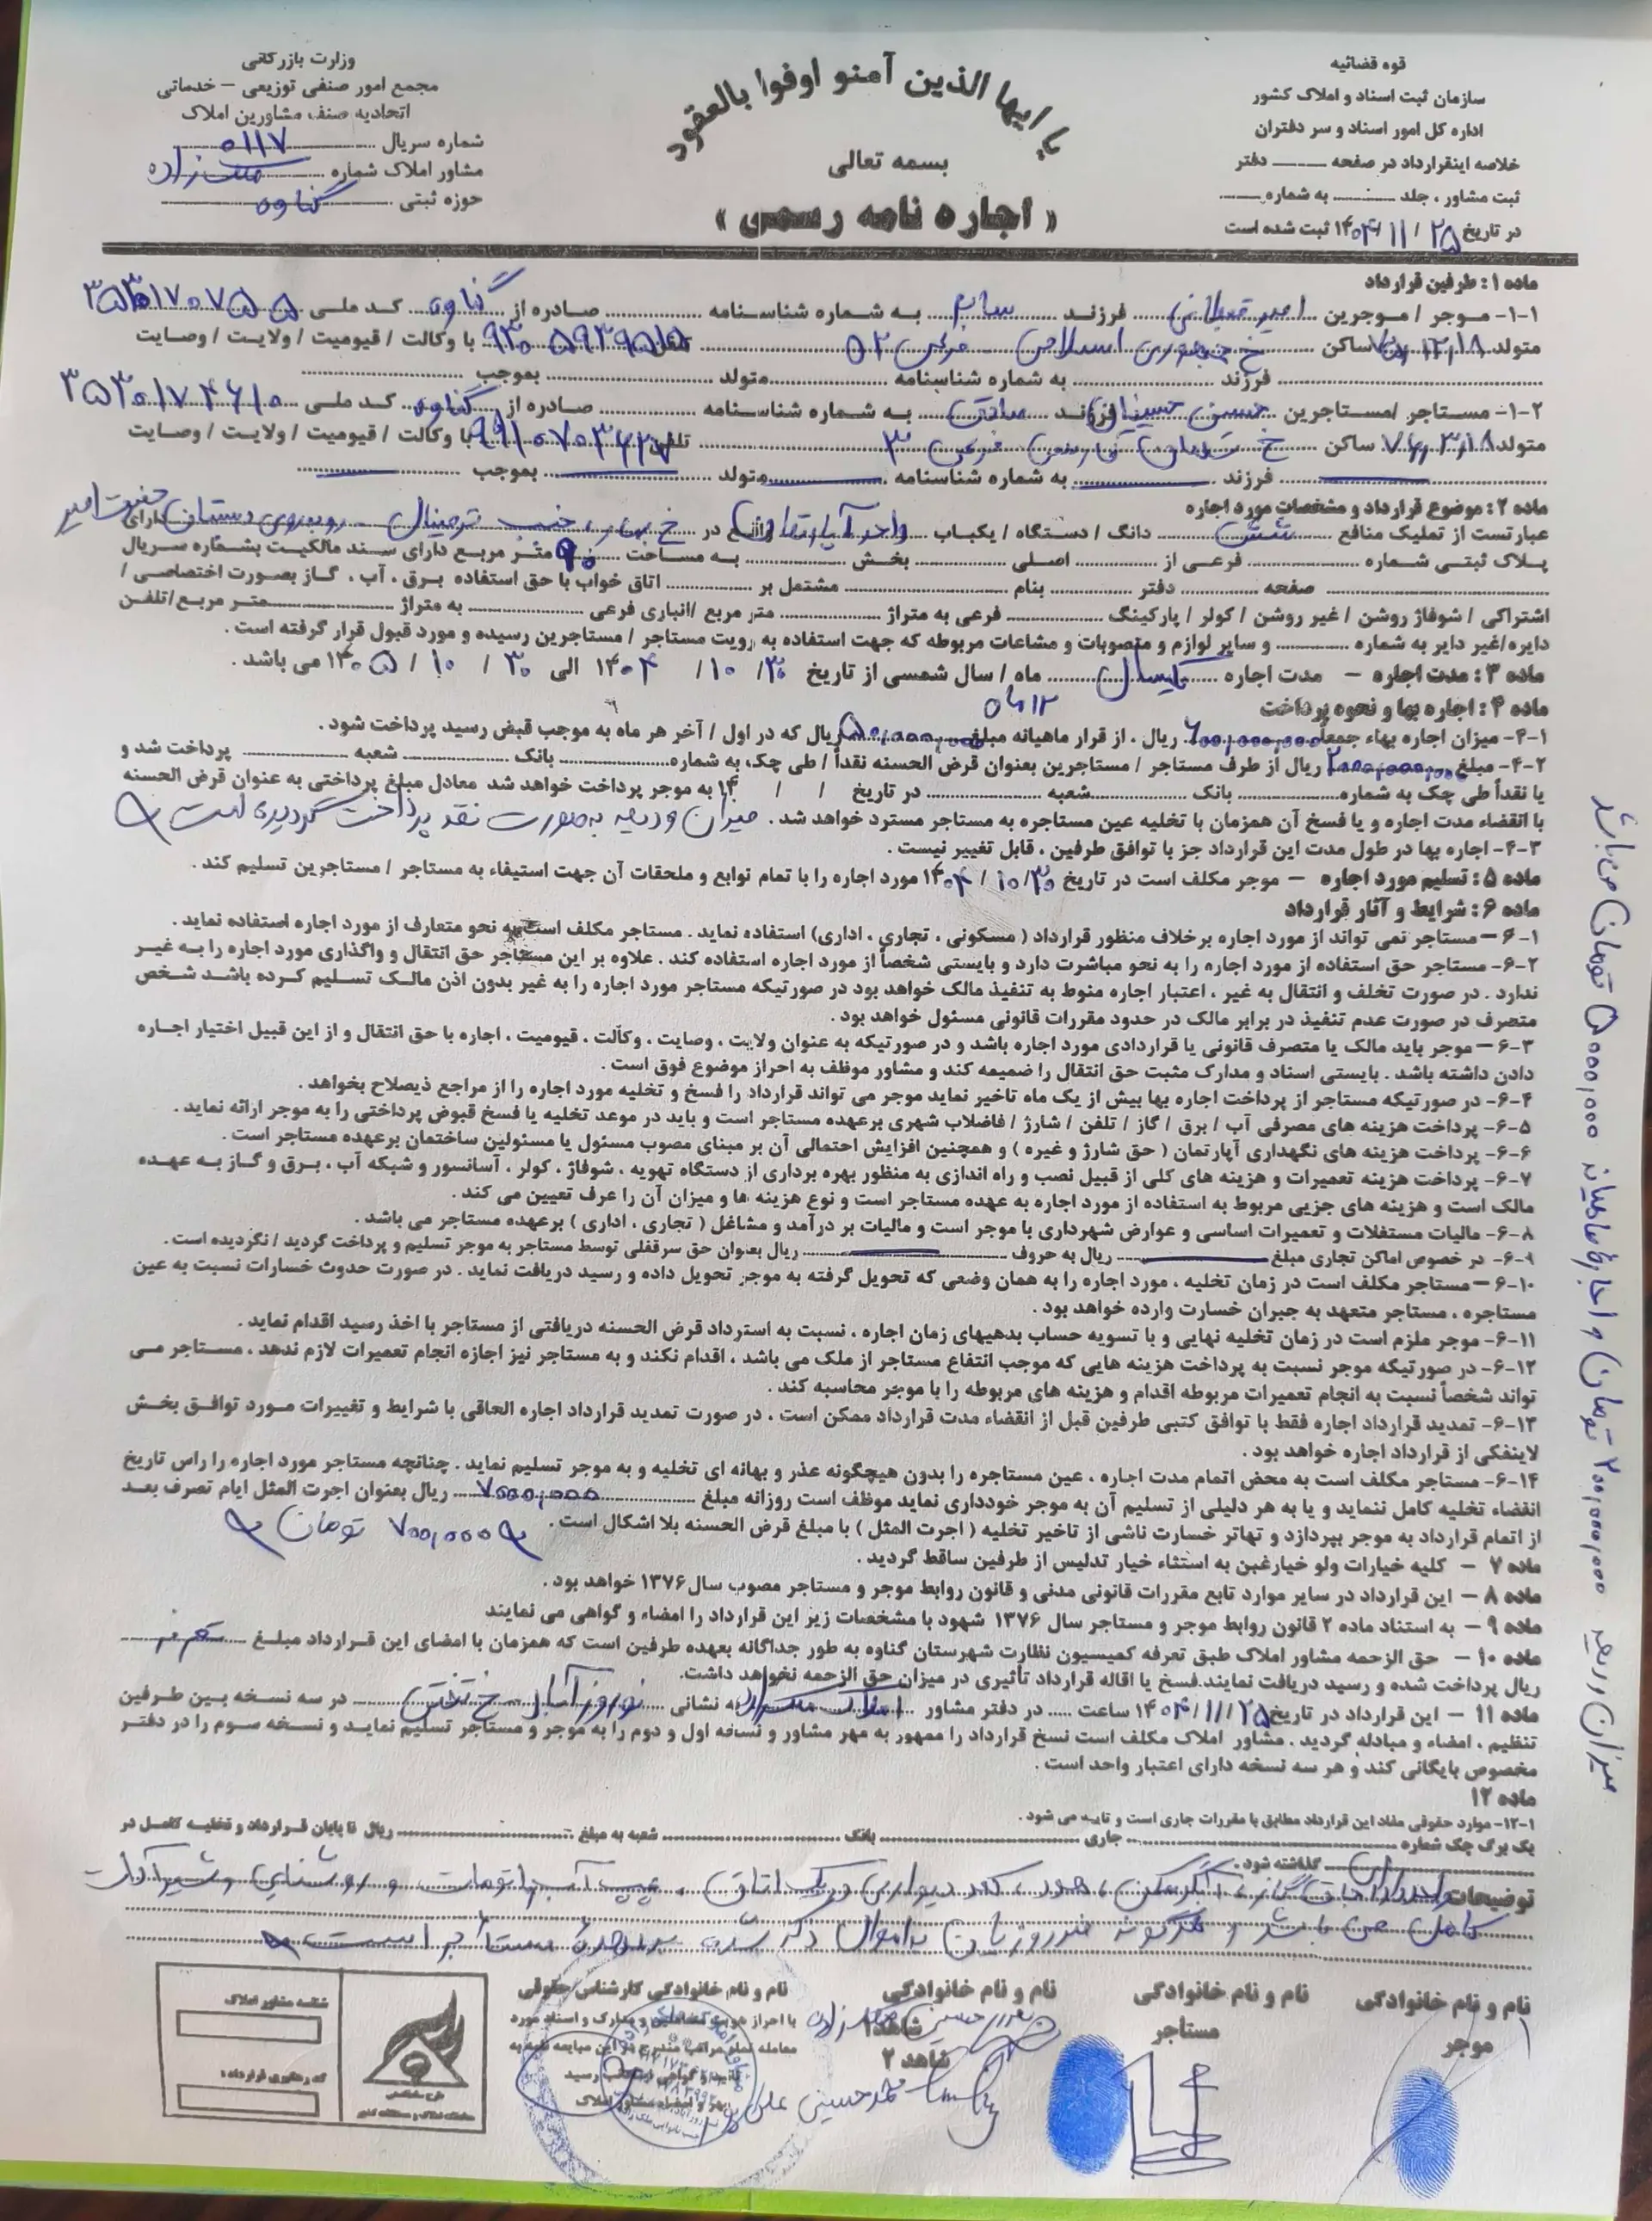 یا ایها الذین آمنو اوفوا بالعقود
بسمه تعالی
« اجاره نامه رسمی »
قوه قضائیه
سازمان ثبت اسناد و املاک کشور
اداره کل امور اسناد و سر دفتران
خلاصه اینقرارداد در صفحه ......... دفتر
ثبت مشاور ، جلد ......... به شماره .........
در تاریخ ۲۵ / ۱۱ / ۱۴۰۴ ثبت شده است
وزارت بازرگانی
مجمع امور صنفی توزیعی – خدماتی
اتحادیه صنف مشاورین املاک
شماره سریال ۰۱۱۷
مشاور املاک شماره ملک زاده
حوزه ثبتی گناوه
ماده ۱: طرفین قرارداد
۱-۱- موجر / موجرین امیر ......... فرزند ......... به شماره شناسنامه ......... صادره از گناوه کد ملی
متولد ......... ساکن خ جمهوری اسلامی فرعی ۵۲ تلفن ......... با وکالت / قیومیت / ولایت / وصایت
......... فرزند ......... به شماره شناسنامه ......... متولد ......... بموجب .........
۱-۲- مستاجر /مستاجرین حسین ......... فرزند صادق به شماره شناسنامه ......... صادره از گناوه کد ملی ۳۵۳۰۱۷۴۶۱۰
متولد ۷۶,۳,۱۸ ساکن خ ......... فرعی ۳ تلفن ......... با وکالت / قیومیت / ولایت / وصایت
......... فرزند ......... به شماره شناسنامه ......... متولد ......... بموجب .........
ماده ۲: موضوع قرارداد و مشخصات مورد اجاره
عبارتست از تملیک منافع شش دانگ / دستگاه / یکباب واحد آپارتمان واقع در خ ......... جنب ترمینال - روبروی دبستان حضرت امیر دارای
پلاک ثبتی شماره ......... فرعی از ......... اصلی ......... بخش ......... به مساحت ۹۰ متر مربع دارای سند مالکیت بشماره سریال
......... صفحه ......... دفتر ......... بنام ......... مشتمل بر ......... اتاق خواب با حق استفاده برق ، آب ، گاز بصورت اختصاصی /
اشتراکی / شوفاژ روشن / غیر روشن / کولر / پارکینگ ......... فرعی به متراژ ......... متر مربع /انباری فرعی ......... به متراژ ......... متر مربع/تلفن
دایره/غیر دایر به شماره ......... و سایر لوازم و منصوبات و مشاعات مربوطه که جهت استفاده به رویت مستاجر / مستاجرین رسیده و مورد قبول قرار گرفته است .
ماده ۳: مدت اجاره – مدت اجاره یکسال ماه / سال شمسی از تاریخ ۳۰ / ۱۰ / ۱۴۰۴ الی ۳۰ / ۱۰ / ۱۴۰۵ می باشد .
۱۲ ماه
ماده ۴: اجاره بها و نحوه پرداخت
۴-۱- میزان اجاره بهاء جمعاً ۶۰۰,۰۰۰,۰۰۰ ریال ، از قرار ماهیانه مبلغ ۵۰,۰۰۰,۰۰۰ ریال که در اول / آخر هر ماه به موجب قبض رسید پرداخت شود .
۴-۲- مبلغ ۲۰۰۰,۰۰۰,۰۰۰ ریال از طرف مستاجر / مستاجرین بعنوان قرض الحسنه نقداً / طی چک به شماره ......... بانک ......... شعبه ......... پرداخت شد و
یا نقداً طی چک به شماره ......... بانک ......... شعبه ......... در تاریخ / / ۱۴ به موجر پرداخت خواهد شد معادل مبلغ پرداختی به عنوان قرض الحسنه
با انقضاء مدت اجاره و یا فسخ آن همزمان با تخلیه عین مستاجره به مستاجر مسترد خواهد شد . میزان ودیعه به صورت نقد پرداخت گردیده است
۴-۳- اجاره بها در طول مدت این قرارداد جز با توافق طرفین ، قابل تغییر نیست .
ماده ۵: تسلیم مورد اجاره – موجر مکلف است در تاریخ ۳۰ / ۱۰ / ۱۴۰۴ مورد اجاره را با تمام توابع و ملحقات آن جهت استیفاء به مستاجر / مستاجرین تسلیم کند .
ماده ۶: شرایط و آثار قرارداد
۶-۱ – مستاجر نمی تواند از مورد اجاره برخلاف منظور قرارداد ( مسکونی ، تجاری ، اداری) استفاده نماید . مستاجر مکلف است به نحو متعارف از مورد اجاره استفاده نماید .
۶-۲- مستاجر حق استفاده از مورد اجاره را به نحو مباشرت دارد و بایستی شخصاً از مورد اجاره استفاده کند . علاوه بر این مستاجر حق انتقال و واگذاری مورد اجاره را به غیر
ندارد . در صورت تخلف و انتقال به غیر ، اعتبار اجاره منوط به تنفیذ مالک خواهد بود در صورتیکه مستاجر مورد اجاره را به غیر بدون اذن مالک تسلیم کرده باشد شخص
متصرف در صورت عدم تنفیذ در برابر مالک در حدود مقررات قانونی مسئول خواهد بود .
۶-۳ – موجر باید مالک یا متصرف قانونی یا قراردادی مورد اجاره باشد و در صورتیکه به عنوان ولایت ، وصایت ، وکالت ، قیومیت ، اجاره با حق انتقال و از این قبیل اختیار اجاره
دادن داشته باشد . بایستی اسناد و مدارک مثبت حق انتقال را ضمیمه کند و مشاور موظف به احراز موضوع فوق است .
۶-۴- در صورتیکه مستاجر از پرداخت اجاره بها بیش از یک ماه تاخیر نماید موجر می تواند قرارداد را فسخ و تخلیه مورد اجاره را از مراجع ذیصلاح بخواهد .
۶-۵- پرداخت هزینه های مصرفی آب / برق / گاز / تلفن / شارژ / فاضلاب شهری برعهده مستاجر است و باید در موعد تخلیه یا فسخ قبوض پرداختی را به موجر ارائه نماید .
۶-۶- پرداخت هزینه های نگهداری آپارتمان ( حق شارژ و غیره ) و همچنین افزایش احتمالی آن بر مبنای مصوب مسئول یا مسئولین ساختمان برعهده مستاجر است .
۶-۷- پرداخت هزینه تعمیرات و هزینه های کلی از قبیل نصب و راه اندازی به منظور بهره برداری از دستگاه تهویه ، شوفاژ ، کولر ، آسانسور و شبکه آب ، برق و گاز به عهده
مالک است و هزینه های جزیی مربوط به استفاده از مورد اجاره به عهده مستاجر است و نوع هزینه ها و میزان آن را عرف تعیین می کند .
۶-۸- مالیات مستغلات و تعمیرات اساسی و عوارض شهرداری با موجر است و مالیات بر درآمد و مشاغل ( تجاری ، اداری ) برعهده مستاجر می باشد .
۶-۹- در خصوص اماکن تجاری مبلغ ......... ریال به حروف ......... ریال بعنوان حق سرقفلی توسط مستاجر به موجر تسلیم و پرداخت گردید / نگردیده است .
۶-۱۰ – مستاجر مکلف است در زمان تخلیه ، مورد اجاره را به همان وضعی که تحویل گرفته به موجر تحویل داده و رسید دریافت نماید . در صورت حدوث خسارات نسبت به عین
مستاجره ، مستاجر متعهد به جبران خسارت وارده خواهد بود .
۶-۱۱- موجر ملزم است در زمان تخلیه نهایی و با تسویه حساب بدهیهای زمان اجاره ، نسبت به استرداد قرض الحسنه دریافتی از مستاجر با اخذ رسید اقدام نماید .
۶-۱۲- در صورتیکه موجر نسبت به پرداخت هزینه هایی که موجب انتفاع مستاجر از ملک می باشد ، اقدام نکند و به مستاجر نیز اجازه انجام تعمیرات لازم ندهد ، مستاجر می
تواند شخصاً نسبت به انجام تعمیرات مربوطه اقدام و هزینه های مربوطه را با موجر محاسبه کند .
۶-۱۳- تمدید قرارداد اجاره فقط با توافق کتبی طرفین قبل از انقضاء مدت قرارداد ممکن است ، در صورت تمدید قرارداد اجاره الحاقی با شرایط و تغییرات مورد توافق بخش
لاینفکی از قرارداد اجاره خواهد بود .
۶-۱۴- مستاجر مکلف است به محض اتمام مدت اجاره ، عین مستاجره را بدون هیچگونه عذر و بهانه ای تخلیه و به موجر تسلیم نماید . چنانچه مستاجر مورد اجاره را راس تاریخ
انقضاء تخلیه کامل ننماید و یا به هر دلیلی از تسلیم آن به موجر خودداری نماید موظف است روزانه مبلغ ۷۰۰۰,۰۰۰ ریال بعنوان اجرت المثل ایام تصرف بعد
از اتمام قرارداد به موجر بپردازد و تهاتر خسارت ناشی از تاخیر تخلیه ( اجرت المثل ) با مبلغ قرض الحسنه بلا اشکال است . ۷۰۰,۰۰۰ تومان
ماده ۷ – کلیه خیارات ولو خیارغبن به استثناء خیار تدلیس از طرفین ساقط گردید .
ماده ۸ – این قرارداد در سایر موارد تابع مقررات قانونی مدنی و قانون روابط موجر و مستاجر مصوب سال ۱۳۷۶ خواهد بود .
ماده ۹ – به استناد ماده ۲ قانون روابط موجر و مستاجر سال ۱۳۷۶ شهود با مشخصات زیر این قرارداد را امضاء و گواهی می نمایند
ماده ۱۰ – حق الزحمه مشاور املاک طبق تعرفه کمیسیون نظارت شهرستان گناوه به طور جداگانه بعهده طرفین است که همزمان با امضای این قرارداد مبلغ
ریال پرداخت شده و رسید دریافت نمایند.فسخ یا اقاله قرارداد تأثیری در میزان حق الزحمه نخواهد داشت.
ماده ۱۱ – این قرارداد در تاریخ ۲۵ / ۱۱ / ۱۴۰۴ ساعت ..... در دفتر مشاور املاک ملک زاده به نشانی نوروزآباد - خ ......... در سه نسخه بین طرفین
تنظیم ، امضاء و مبادله گردید . مشاور املاک مکلف است نسخ قرارداد را ممهور به مهر مشاور و نسخه اول و دوم را به موجر و مستاجر تسلیم نماید و نسخه سوم را در دفتر
مخصوص بایگانی کند و هر سه نسخه دارای اعتبار واحد است .
ماده ۱۲
۱۲-۱- موارد حقوقی مفاد این قرارداد مطابق با مقررات جاری است و تایید می شود .
یک برگ چک شماره ......... جاری ......... بانک ......... شعبه به مبلغ ......... ریال تا پایان قرارداد و تخلیه کامل در
......... گذاشته شود .
توضیحات: واحد دارای اجاق گاز ، آبگرمکن ، هود ، کمد دیواری در یک اتاق ، پمپ آب اتومات و روشنایی و شیرآلات
کامل می باشد و هرگونه ضرر و زیان به اموال ذکر شده برعهده مستأجر است
نام و نام خانوادگی
موجر
نام و نام خانوادگی
مستاجر
نام و نام خانوادگی
شاهد۱
شاهد ۲
محمدحسین
نام و نام خانوادگی کارشناس حقوقی
با احراز هویت متعاملین و مدارک و اسناد مورد
معامله تمام مراتب مندرج در این مبایعه نامه به
تائید و گواهی اینجانب رسید
مهر و امضاء مشاور املاک
شناسه مشاور املاک
کد رهگیری قرارداد :
میزان ودیعه ۲۰۰,۰۰۰,۰۰۰ تومان و اجاره ماهیانه ۵۰۰۰,۰۰۰ تومان می باشد